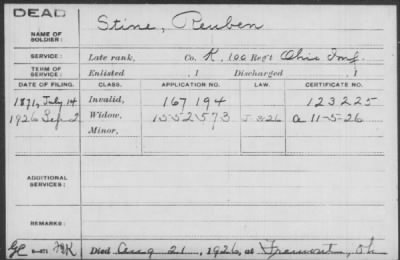 DEAD
NAME OF SOLDIER: Stine, Reuben
SERVICE: Late rank, Co. K, 100 Reg't Ohio Inf.
TERM OF SERVICE: Enlisted , 1 Discharged , 1
DATE OF FILING. CLASS. APPLICATION NO. LAW. CERTIFICATE NO.
1871, July 14 Invalid, 167 194 123225
1926 Sep 2 Widow, 1552573 a 11-5-26
Minor,
ADDITIONAL SERVICES:
REMARKS:
Died Aug 21, 1926, at Fremont, Oh